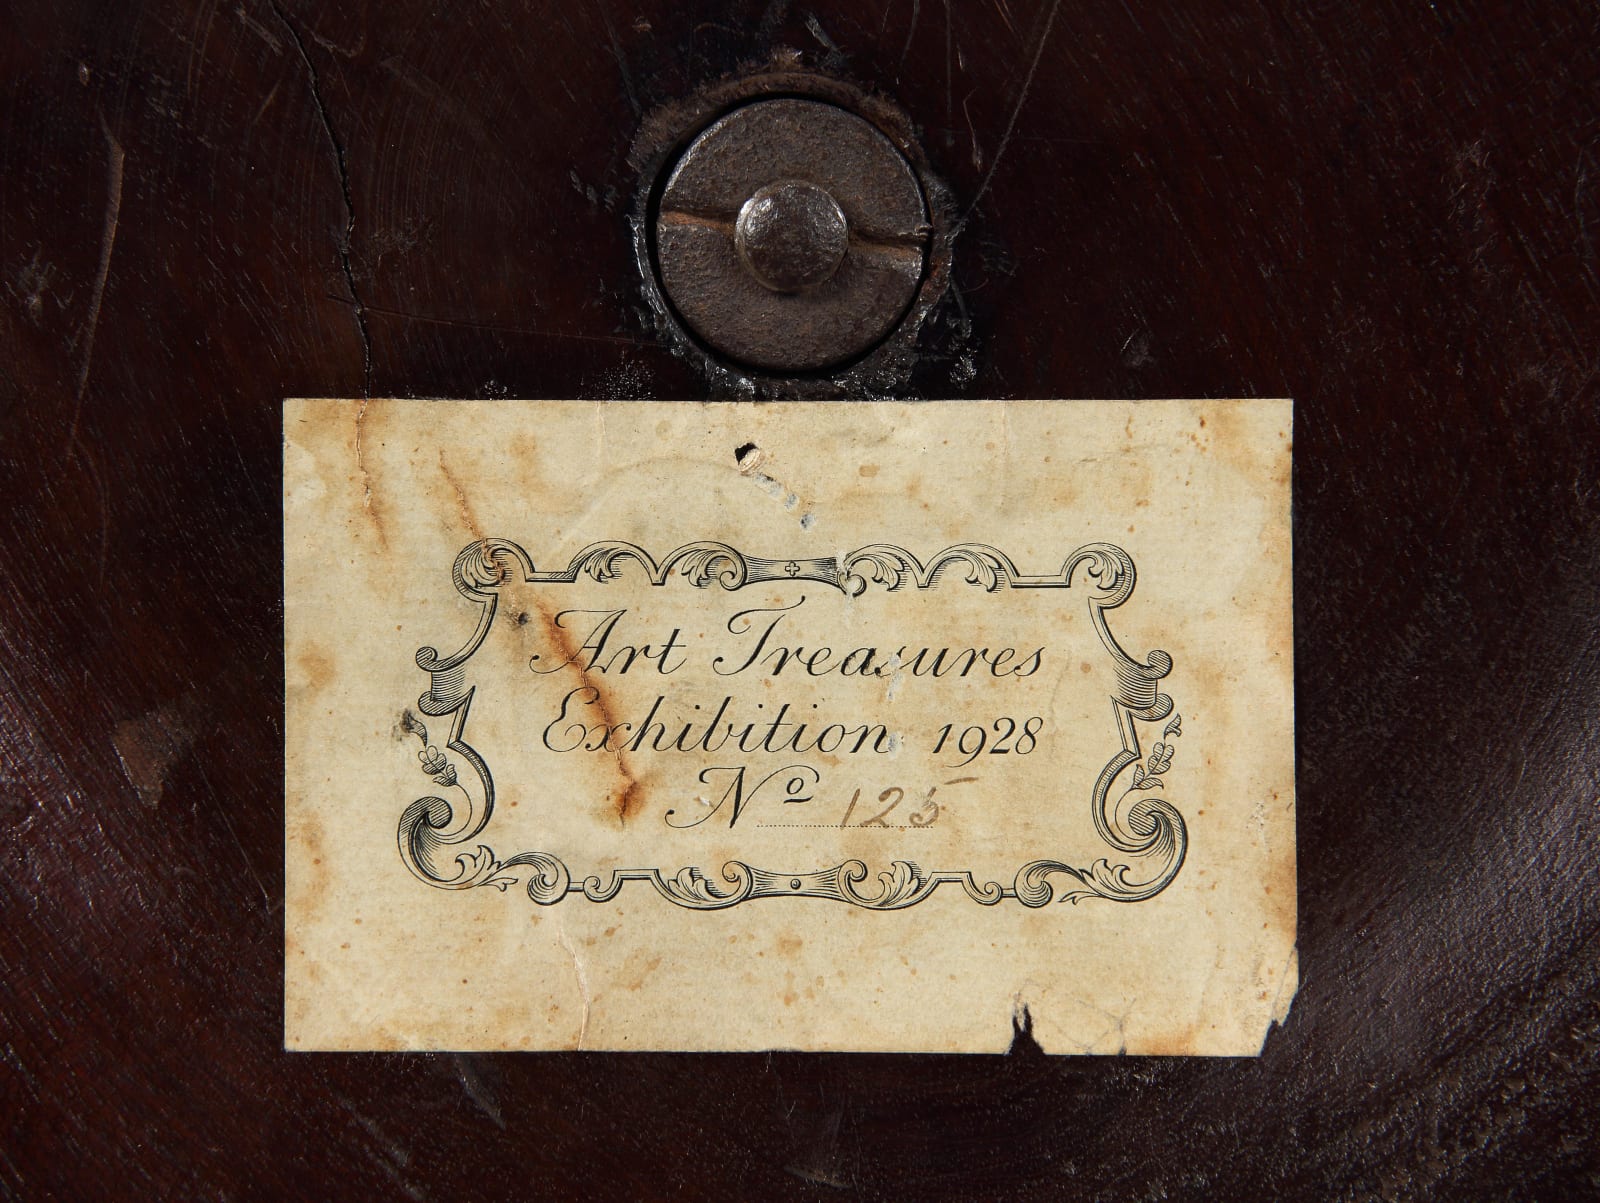 Art Treasures
Exhibition 1928
Nº 125